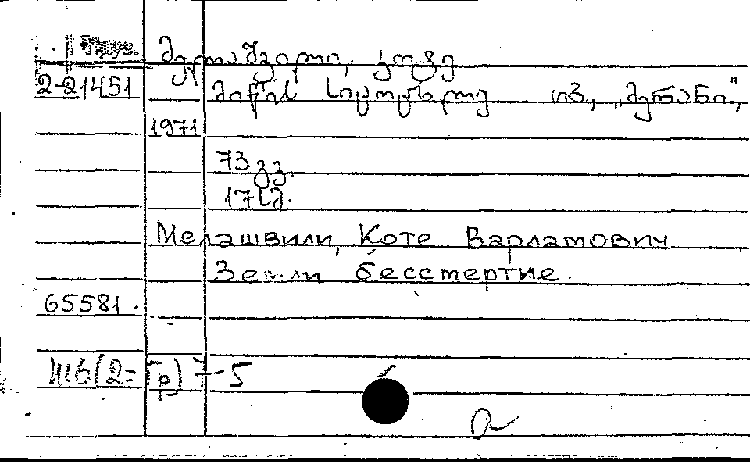 მელაშვილი, კოტე
2-21451 მიწის სიცოცხლე თბ., „მერანი",
1971
73 გვ.
17 სმ.
Мелашвили, Коте Варламович
Земли бессмертие.
65581.
Ш6(2=Гр)7-5